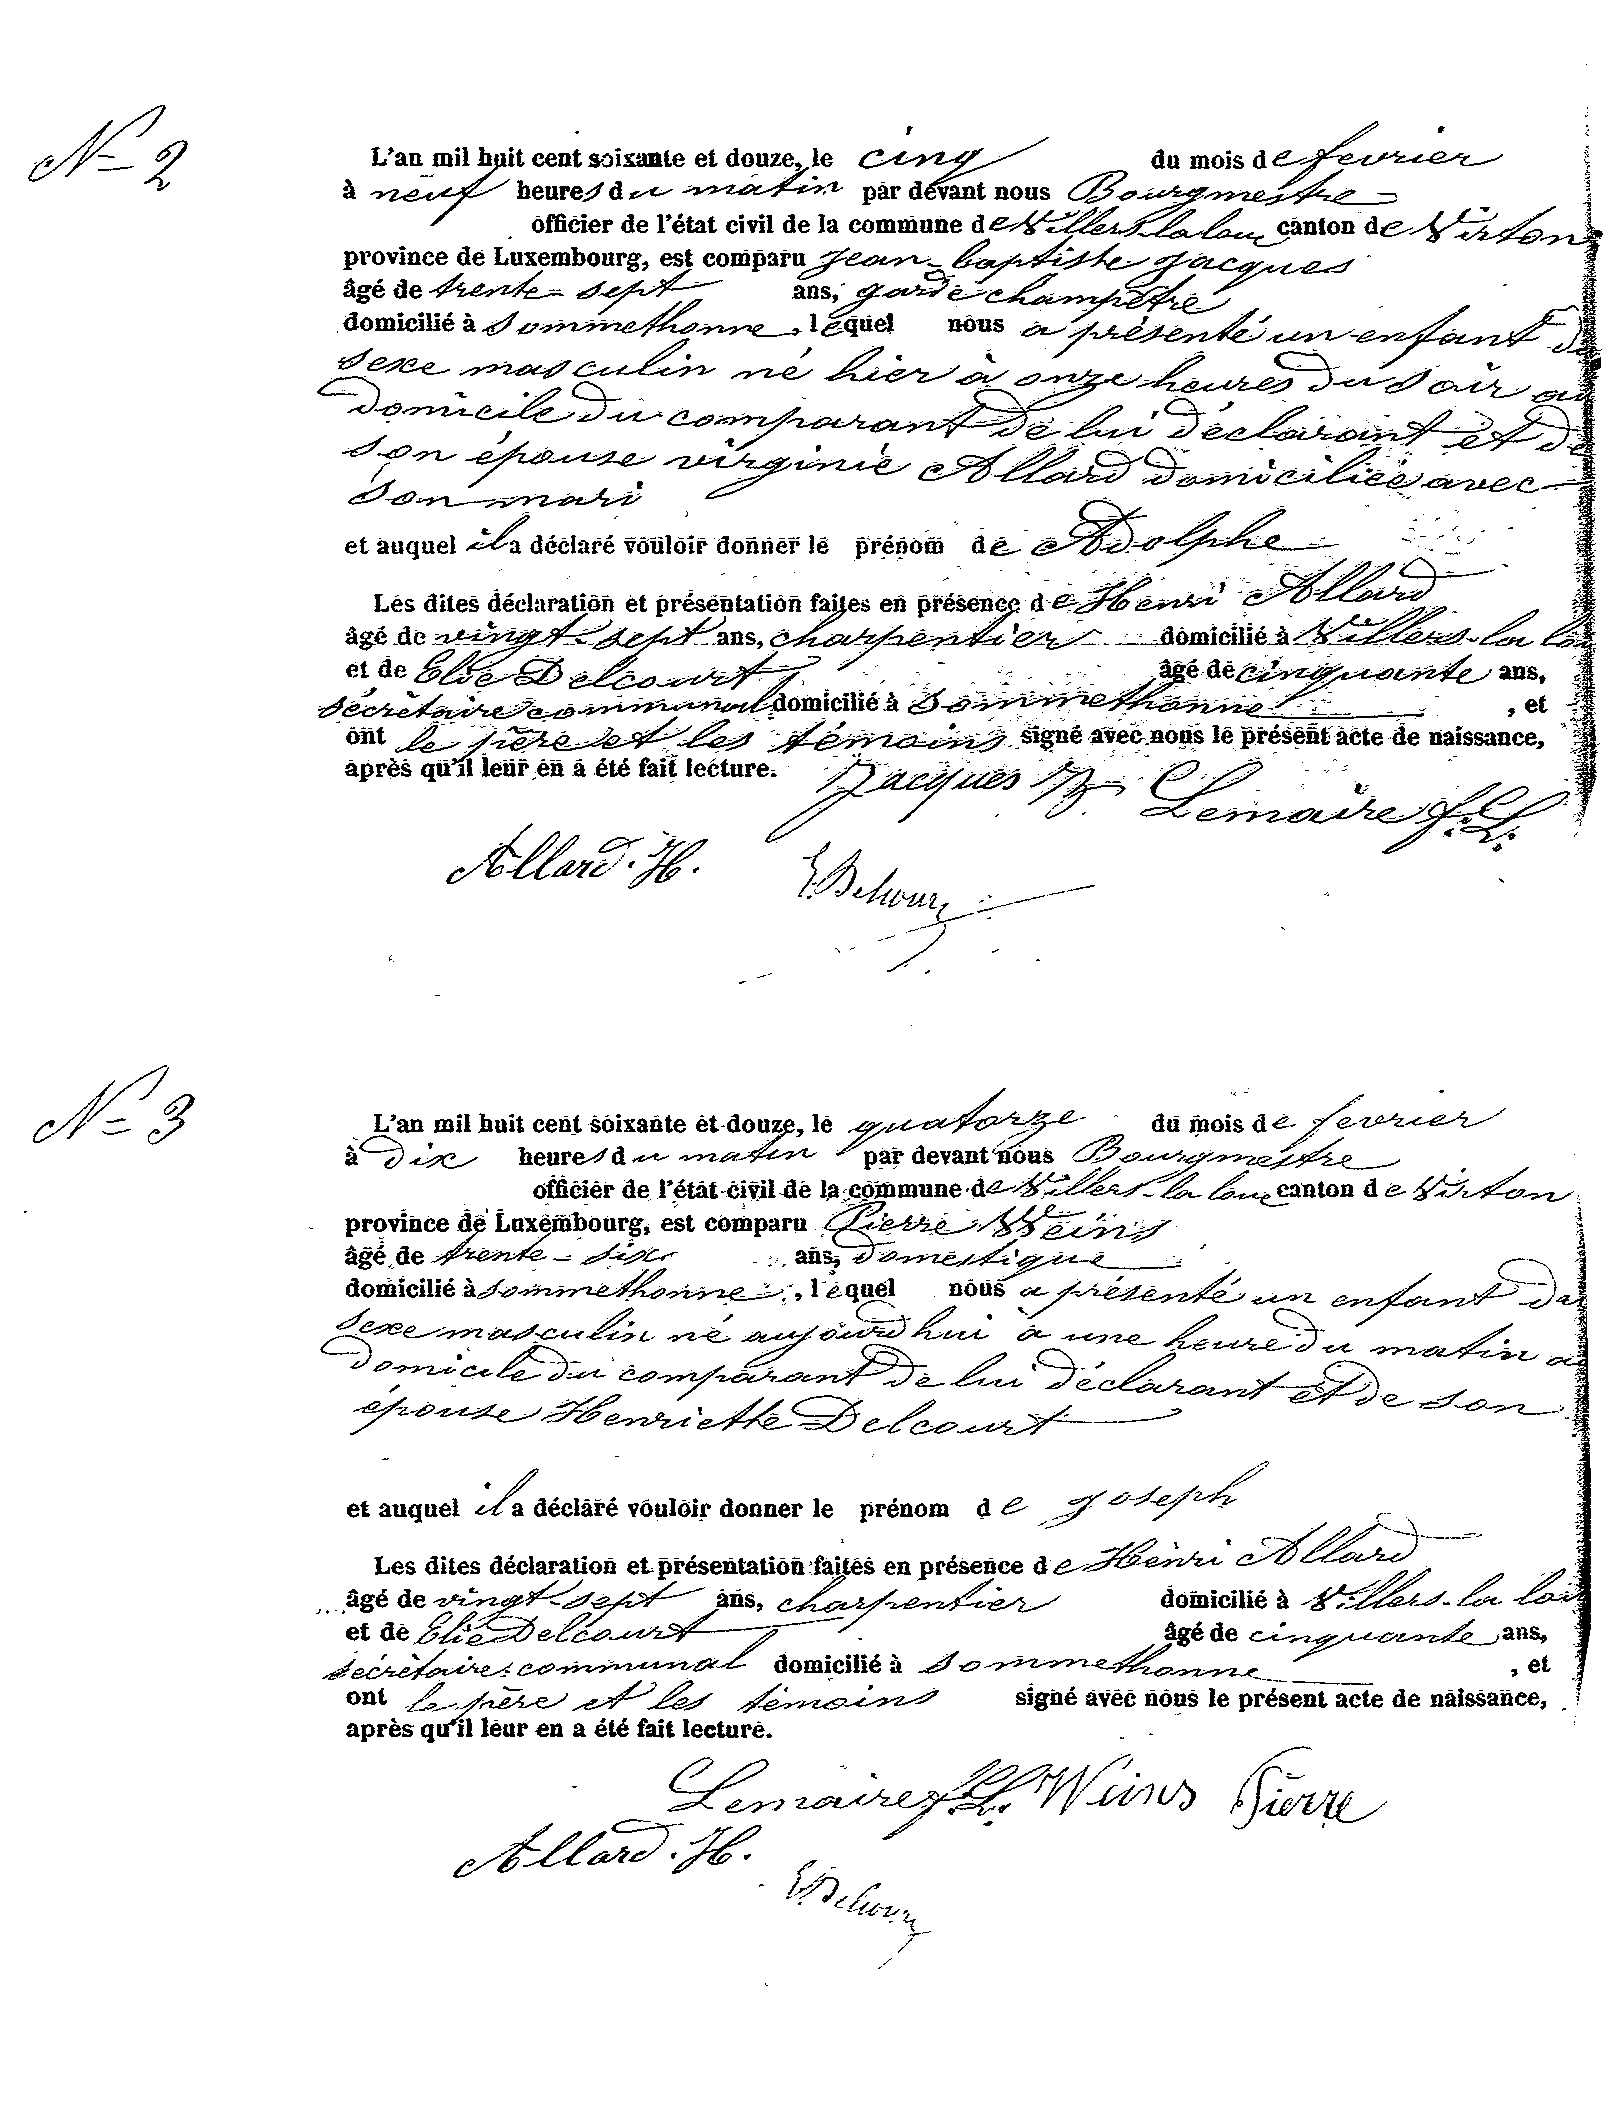 N= 2
L'an mil huit cent soixante et douze, le cinq du mois de fevrier
à neuf heures du matin par devant nous Bourgmestre
officier de l'état civil de la commune de Villers-la loue canton de Virton
province de Luxembourg, est comparu Jean-baptiste Jacques
âgé de trente-sept ans, garde champêtre
domicilié à Sommethonne, lequel nous a présenté un enfant du
sexe masculin né hier à onze heures du soir au
domicile du comparant de lui déclarant et de
son épouse virginie Allard domiciliée avec
son mari
et auquel il a déclaré vouloir donner le prénom de Adolphe
Les dites déclaration et présentation faites en présence de Henri Allard
âgé de vingt-sept ans, charpentier domicilié à Villers-la loue
et de Elie Delcourt âgé de cinquante ans,
secrétaire communal domicilié à Sommethonne, et
ont le père et les témoins signé avec nous le présent acte de naissance,
après qu'il leur en a été fait lecture.
Jacques JB. Lemaire f.L.
Allard.H. E.Delcourt
N= 3
L'an mil huit cent soixante et douze, le quatorze du mois de fevrier
à dix heures du matin par devant nous Bourgmestre
officier de l'état civil de la commune de Villers-la loue canton de Virton
province de Luxembourg, est comparu Pierre Weins
âgé de trente-six ans, domestique
domicilié à Sommethonne, lequel nous a présenté un enfant du
sexe masculin né aujourd hui à une heure du matin au
domicile du comparant de lui déclarant et de son
épouse Henriette Delcourt
et auquel il a déclaré vouloir donner le prénom de Joseph
Les dites déclaration et présentation faites en présence de Henri Allard
âgé de vingt-sept ans, charpentier domicilié à Villers-la loue
et de Elie Delcourt âgé de cinquante ans,
secrétaire communal domicilié à Sommethonne, et
ont le père et les témoins signé avec nous le présent acte de naissance,
après qu'il leur en a été fait lecture.
Lemaire f.L. Weins Pierre
Allard.H.
E.Delcourt